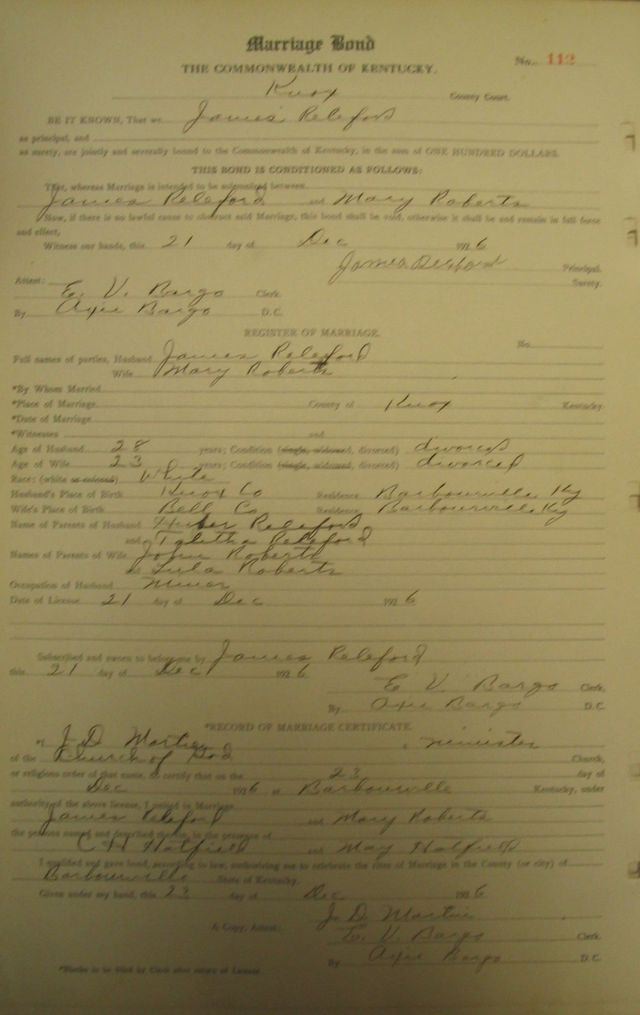 Marriage Bond
No. 112
THE COMMONWEALTH OF KENTUCKY.
Knox County Court.
BE IT KNOWN, That we James Releford
as principal, and
as surety, are jointly and severally bound to the Commonwealth of Kentucky, in the sum of ONE HUNDRED DOLLARS.
THIS BOND IS CONDITIONED AS FOLLOWS:
That, whereas Marriage is intended to be solemnized between
James Releford and Mary Roberts
Now, if there is no lawful cause to obstruct said Marriage, this bond shall be void, otherwise it shall be and remain in full force
and effect,
Witness our hands, this 21 day of Dec 1926
James Principal.
Surety.
Attest:
E. V. Bargo Clerk.
By Bargo D.C.
REGISTER OF MARRIAGE.
No.
Full names of parties, Husband James Releford
Wife Mary Roberts
*By Whom Married
*Place of Marriage County of Knox Kentucky
*Date of Marriage
*Witnesses and
Age of Husband 28 years; Condition (single, widowed, divorced) divorced
Age of Wife 23 years; Condition (single, widowed, divorced) divorced
Race: (white or colored) White
Husband's Place of Birth Knox Co Residence Barbourville, Ky
Wife's Place of Birth Bell Co Residence Barbourville Ky
Name of Parents of Husband Releford
and Talitha Releford
Names of Parents of Wife John Roberts
Lula Roberts
Occupation of Husband Miner
Date of License 21 day of Dec 1926
Subscribed and sworn to before me by James Releford
this 21 day of Dec 1926
E V Bargo Clerk,
By Bargo D.C.
*RECORD OF MARRIAGE CERTIFICATE.
J. D. Martin a minister
of the Church of God Church,
or religious order of that name, do certify that on the 23 day of
Dec 1926 at Barbourville Kentucky, under
authority of the above license, I united in Marriage
James Releford and Mary Roberts
the persons named and described therein, in the presence of
C H Hatfield and May Hatfield
I qualified and gave bond, according to law, authorizing me to celebrate the rites of Marriage in the County (or city) of
Barbourville State of Kentucky.
Given under my hand, this 23 day of Dec 1926
J. D. Martin
A Copy, Attest: E. V. Bargo Clerk.
By Bargo D.C.
*Blanks to be filled by Clerk after return of License